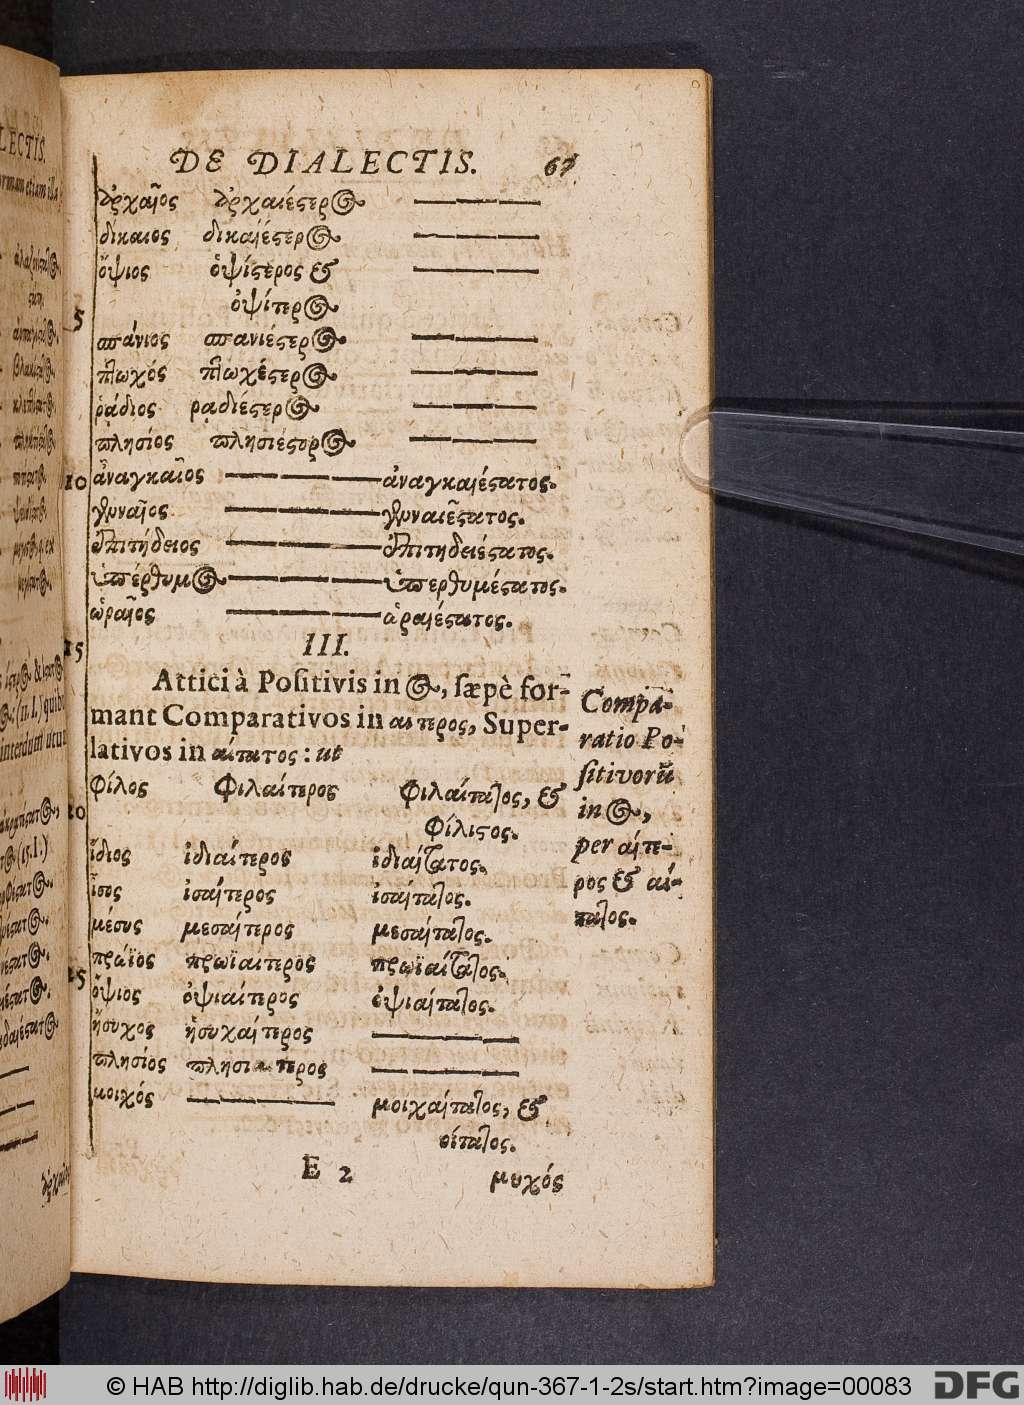 DE DIALECTIS. 67
ἀρχαῖος ἀρχαιέςερος
δίκαιος δικαιέςερος
ὄψιος ὀψίςερος &
ὀψίτερος
5
σπάνιος σπανιέςερος
πτωχός πτωχέςερος
ῥάδιος ῥαδιέςερος
πλησίος πλησιέςερος
10 ἀναγκαῖος ἀναγκαιέςατος.
γυναῖος γυναιέςατος.
ἐπιτήδειος ἐπιτηδειέςατος.
ὑπέρθυμος ὑπερθυμέςατος.
ὡραῖος ὡραιέςατος.
15 III.
Attici à Positivis in ος, sæpè for-
mant Comparativos in αιτερος, Super-
lativos in αίτατος : ut
φίλος φιλαίτερος φιλαίτατος, &
20 φίλιςος.
ἴδιος ἰδιαίτερος ἰδιαίτατος.
ἴσος ἰσαίτερος ἰσαίτατος.
μέσος μεσαίτερος μεσαίτατος.
πρώϊος πρωϊαιτερος πρωϊαίτατος.
25 ὄψιος ὀψιαίτερος ὀψιαίτατος.
ἥσυχος ἡσυχαίτερος
πλησίος πλησιαίτερος
μοιχός μοιχαίτατος, &
οίτατος.
E 2 μυχός
Compa-
ratio Po-
sitivorū
in ος,
per αίτε-
ρος & αί-
τατος.
LECTIS.
© HAB http://diglib.hab.de/drucke/qun-367-1-2s/start.htm?image=00083
DFG